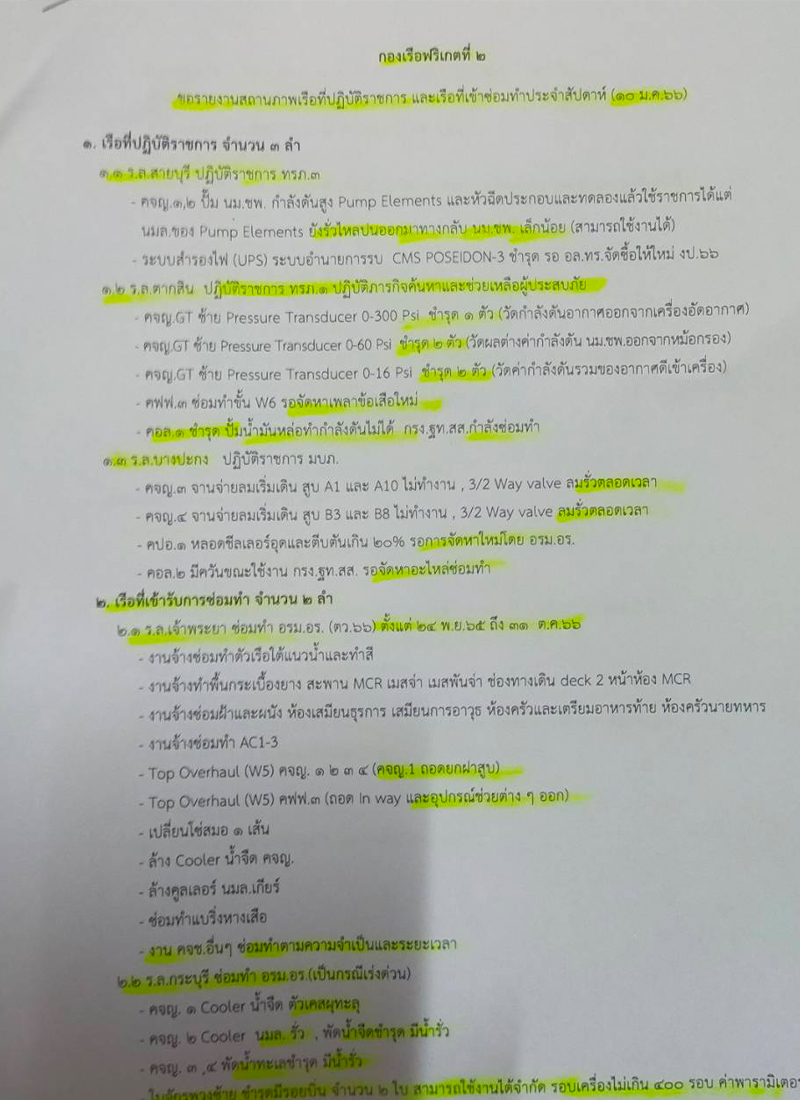 กองเรือฟริเกตที่ ๒
ขอรายงานสถานภาพเรือที่ปฏิบัติราชการ และเรือที่เข้าซ่อมทำประจำสัปดาห์ (๑๐ ม.ค.๖๖)
๑. เรือที่ปฏิบัติราชการ จำนวน ๓ ลำ
๑.๑ ร.ล.สายบุรี ปฏิบัติราชการ ทรภ.๓
- คจญ.๑,๒ ปั๊ม นม.ชพ. กำลังดันสูง Pump Elements และหัวฉีดประกอบและทดลองแล้วใช้ราชการได้แต่
นมล.ของ Pump Elements ยังรั่วไหลปนออกมาทางกลับ นม.ชพ. เล็กน้อย (สามารถใช้งานได้)
- ระบบสำรองไฟ (UPS) ระบบอำนายการรบ CMS POSEIDON-3 ชำรุด รอ อล.ทร.จัดซื้อให้ใหม่ งป.๖๖
๑.๒ ร.ล.ตากสิน ปฏิบัติราชการ ทรภ.๑ ปฏิบัติภารกิจค้นหาและช่วยเหลือผู้ประสบภัย
- คจญ.GT ซ้าย Pressure Transducer 0-300 Psi ชำรุด ๑ ตัว (วัดกำลังดันอากาศออกจากเครื่องอัดอากาศ)
- คจญ.GT ซ้าย Pressure Transducer 0-60 Psi ชำรุด ๒ ตัว (วัดผลต่างค่ากำลังดัน นม.ชพ.ออกจากหม้อกรอง)
- คจญ.GT ซ้าย Pressure Transducer 0-16 Psi ชำรุด ๒ ตัว (วัดค่ากำลังดันรวมของอากาศดีเข้าเครื่อง)
- คฟฟ.๓ ซ่อมทำขั้น W6 รอจัดหาเพลาข้อเสือใหม่
- คอล.๑ ชำรุด ปั๊มน้ำมันหล่อทำกำลังดันไม่ได้ กรง.ฐท.สส.กำลังซ่อมทำ
๑.๓ ร.ล.บางปะกง ปฏิบัติราชการ มบภ.
- คจญ.๓ จานจ่ายลมเริ่มเดิน สูบ A1 และ A10 ไม่ทำงาน , 3/2 Way valve ลมรั่วตลอดเวลา
- คจญ.๔ จานจ่ายลมเริ่มเดิน สูบ B3 และ B8 ไม่ทำงาน , 3/2 Way valve ลมรั่วตลอดเวลา
- คปอ.๑ หลอดชีลเลอร์อุดและตีบตันเกิน ๒๐% รอการจัดหาใหม่โดย อรม.อร.
- คอล.๒ มีควันขณะใช้งาน กรง.ฐท.สส. รอจัดหาอะไหล่ซ่อมทำ
๒. เรือที่เข้ารับการซ่อมทำ จำนวน ๒ ลำ
๒.๑ ร.ล.เจ้าพระยา ซ่อมทำ อรม.อร. (ตว.๖๖) ตั้งแต่ ๒๔ พ.ย.๖๕ ถึง ๓๑ ต.ค.๖๖
- งานจ้างซ่อมทำตัวเรือใต้แนวน้ำและทำสี
- งานจ้างทำพื้นกระเบื้องยาง สะพาน MCR เมสจ่า เมสพันจ่า ช่องทางเดิน deck 2 หน้าห้อง MCR
- งานจ้างซ่อมฝ้าและผนัง ห้องเสมียนธุรการ เสมียนการอาวุธ ห้องครัวและเตรียมอาหารท้าย ห้องครัวนายทหาร
- งานจ้างซ่อมทำ AC1-3
- Top Overhaul (W5) คจญ. ๑ ๒ ๓ ๔ (คจญ.1 ถอดยกฝาสูบ)
- Top Overhaul (W5) คฟฟ.๓ (ถอด In way และอุปกรณ์ช่วยต่าง ๆ ออก)
- เปลี่ยนโซ่สมอ ๑ เส้น
- ล้าง Cooler น้ำจืด คจญ.
- ล้างคูลเลอร์ นมล.เกียร์
- ซ่อมทำแบริ่งหางเสือ
- งาน คจช.อื่นๆ ซ่อมทำตามความจำเป็นและระยะเวลา
๒.๒ ร.ล.กระบุรี ซ่อมทำ อรม.อร.(เป็นกรณีเร่งด่วน)
- คจญ. ๑ Cooler น้ำจืด ตัวเคสผุทะลุ
- คจญ. ๒ Cooler นมล. รั่ว , พัดน้ำจืดชำรุด มีน้ำรั่ว
- คจญ. ๓ ,๔ พัดน้ำทะเลชำรุด มีน้ำรั่ว
- ใบจักรพวงซ้าย ชำรุดมีรอยบิ่น จำนวน ๒ ใบ สามารถใช้งานได้จำกัด รอบเครื่องไม่เกิน ๔๐๐ รอบ ค่าพารามิเตอร